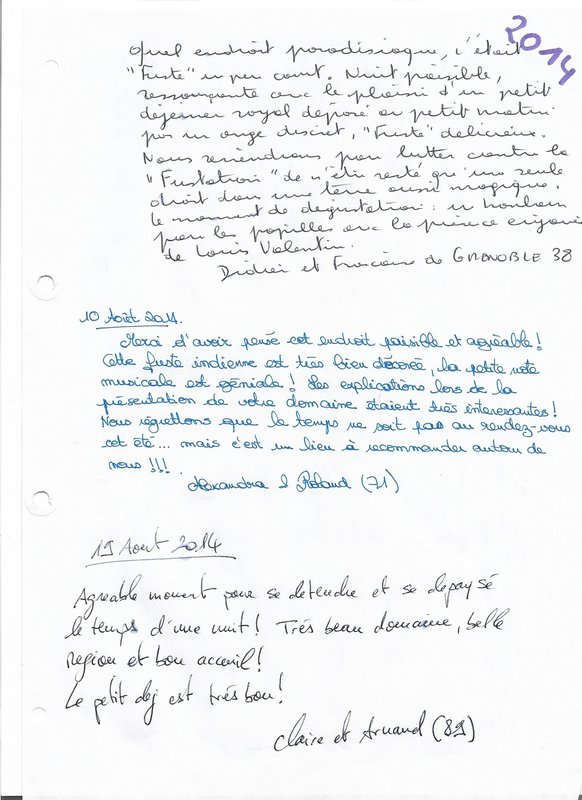 2014
Quel endroit paradisiaque, c'était
"Fuste" un peu court. Nuit paisible,
ressourçante avec le plaisir d'un petit
déjeuner royal déposé au petit matin
par un ange discret, "Fuste" délicieux.
Nous reviendrons pour lutter contre la
"Fustation" de n'être resté qu'une seule
droit dans une terre aussi magique.
le moment de dégustation : un bonheur
pour les papilles avec la présence
de Louis Valentin.
Didier et Francine de GRENOBLE 38
10 Août 2014.
Merci d'avoir pensé cet endroit paisible et agréable!
Cette fuste indienne est très bien décorée, la petite note
musicale est géniale! Les explications lors de la
présentation de votre domaine étaient très interessantes!
Nous régrettons que le temps ne soit pas au rendez-vous
cet été... mais c'est un lieu à recommander autour de
nous!!!
Alexandra & Roland (71)
19 Aout 2014
Agreable moment pour se detendre et se depaysé
le temps d'une nuit! Très beau domaine, belle
region et bon accueil!
Le petit dej est très bon!
Claire et Arnaud (89)